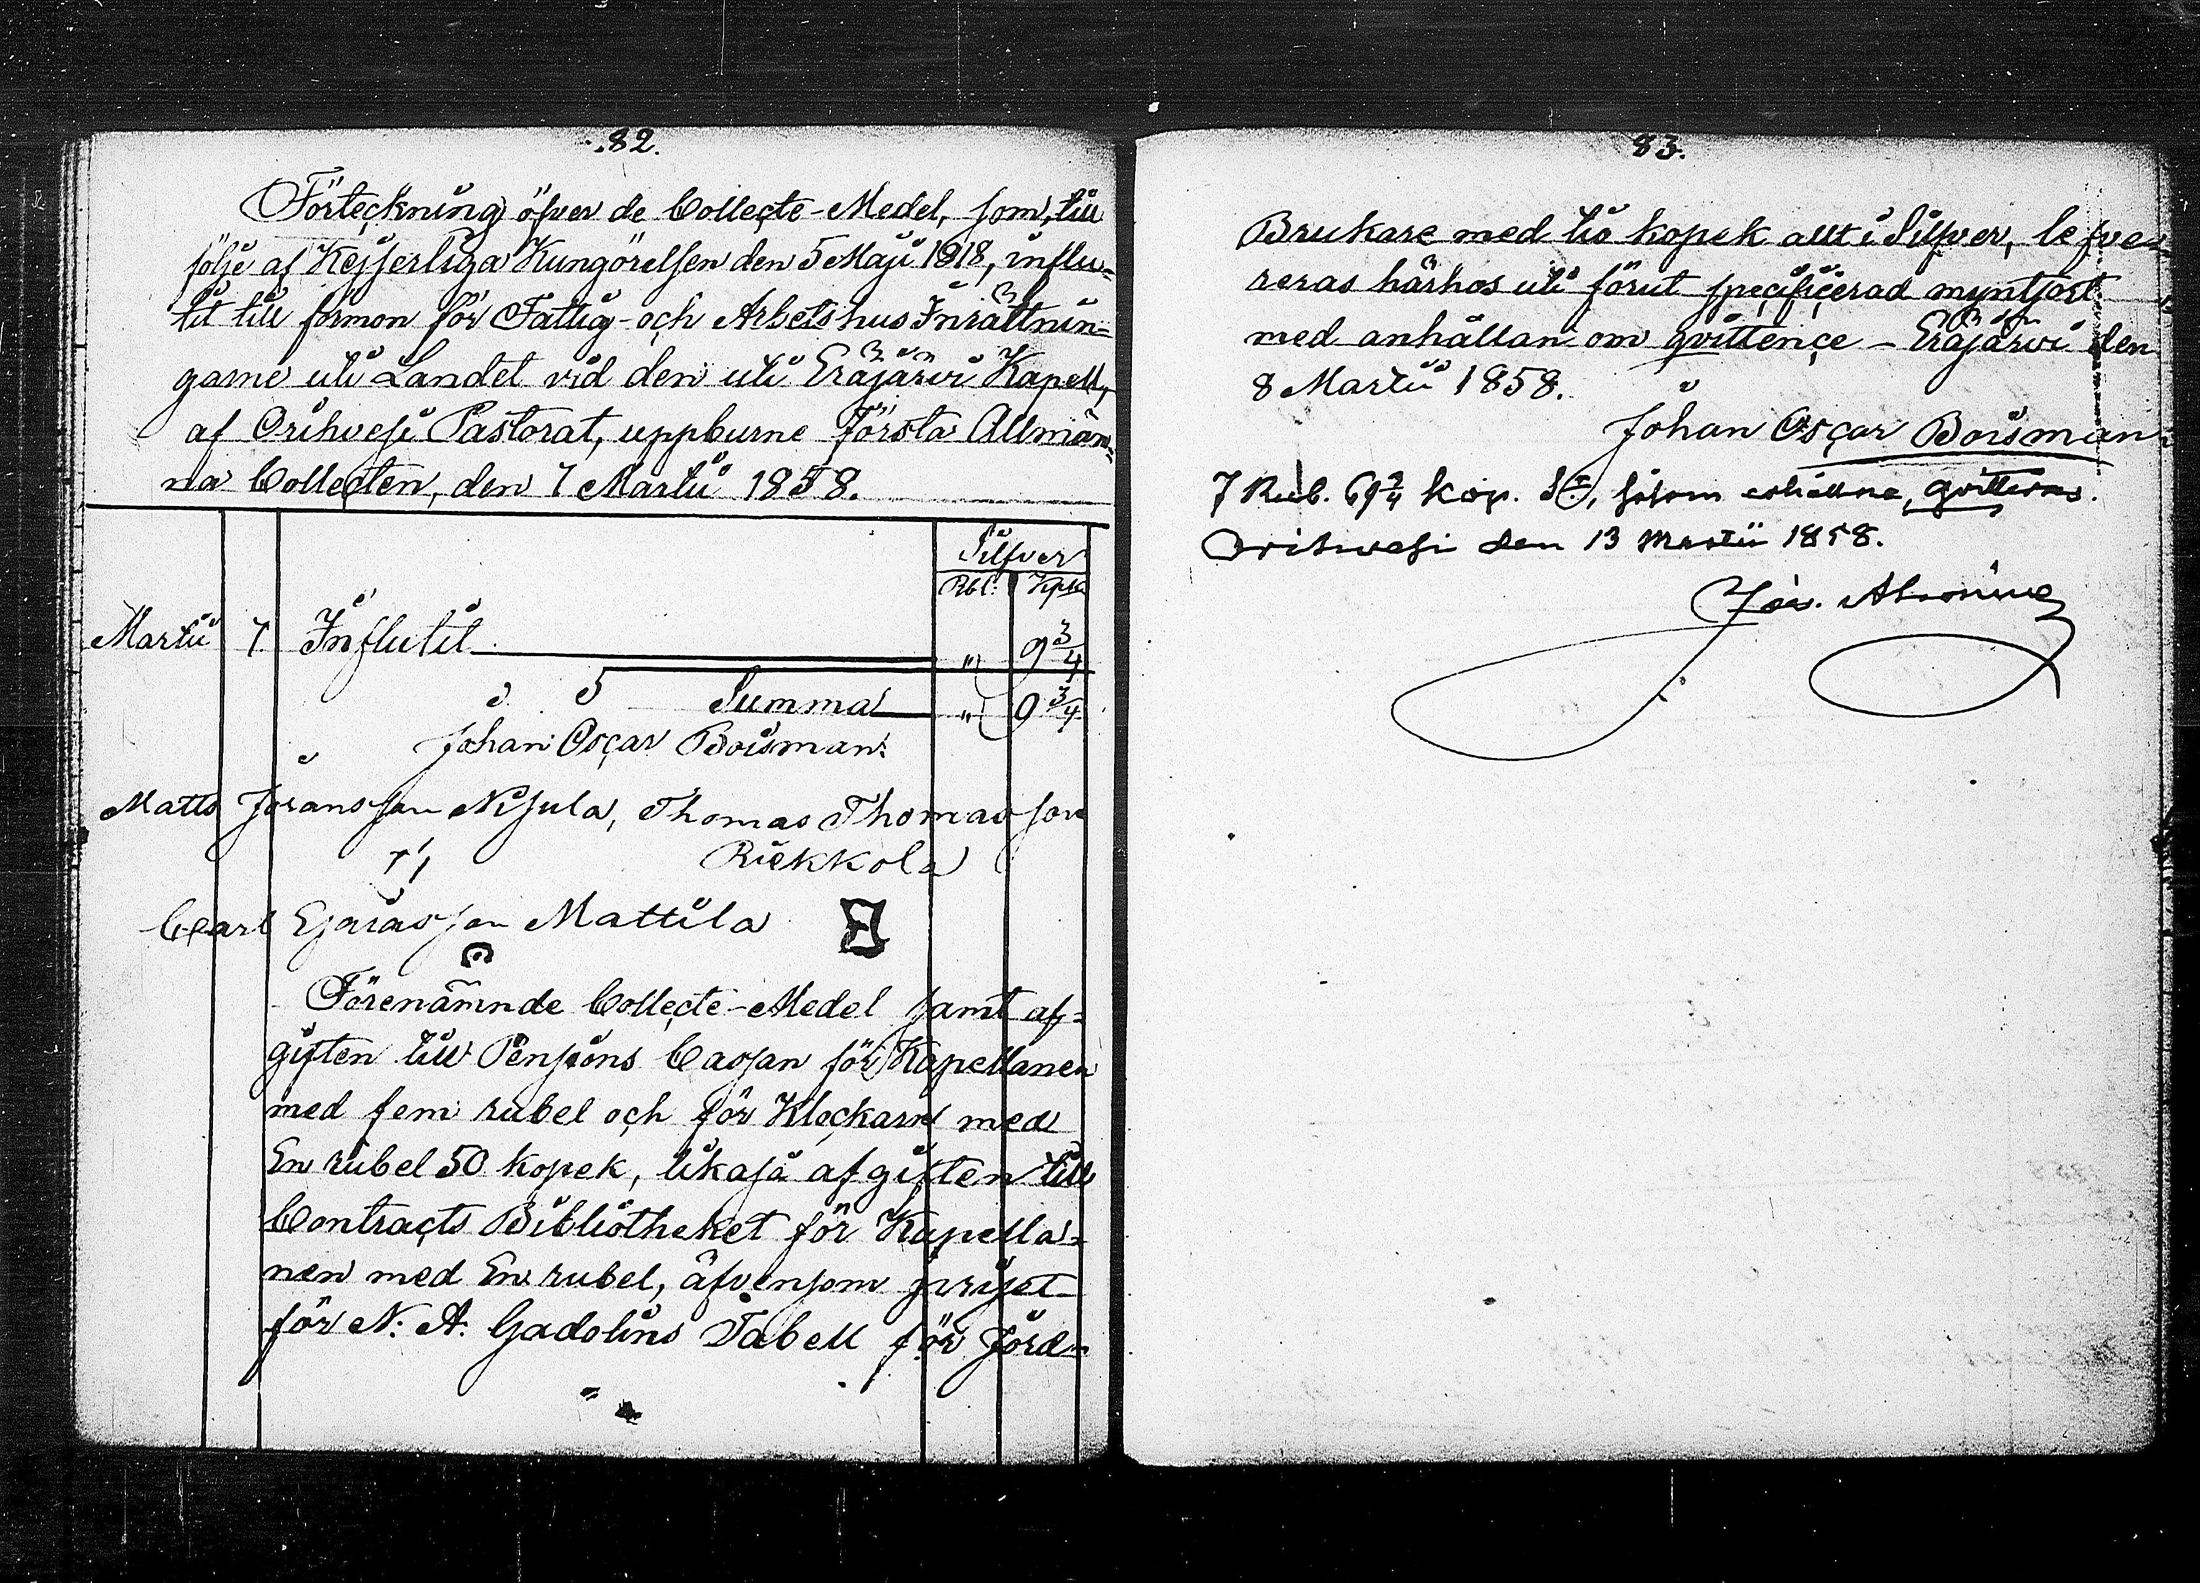 82.
Förteckning öfver de Collecte-Medel, som, till
följe af Kejserliga Kungörelsen den 5 Maji 1818, influ=
tit till förmon för Fattig- och Arbetshus Inrättnin=
garne uti Landet vid den uti Eräjärvi Kapell,
af Orihvesi Pastorat, uppburne Första Allmän=
na Collecten, den 7 Martii 1858.
Silfver
Rbl. Kpk.
Martii 7. Influtit " 9 3/4
Summa " 9 3/4
Johan Oscar Boisman.
Matts Joransson Nisula, Thomas Thomasson
Riekkola
Carl Esaiasson Mattila
Förenämnde Collecte-Medel samt af=
giften till Pensions Cassan för Kapellanen
med fem rubel och för Klockarn med
En rubel 50 kopek, likaså afgiften till
Contracts Bibliotheket för Kapella=
nen med En rubel, äfvensom priset
för N. A. Gadolins Tabell för Jord=
83.
Brukare med tio kopek allt i Silfver, lefve=
reras härhos uti förut specificerad myntsort
med anhållan om qvittence - Eräjärvi den
8 Martii 1858.
Johan Oscar Boisman
7 Rub. 69 3/4 kop. Sr, såsom erhållne, qvitteras.
Orihvesi den 13 Martii 1858.